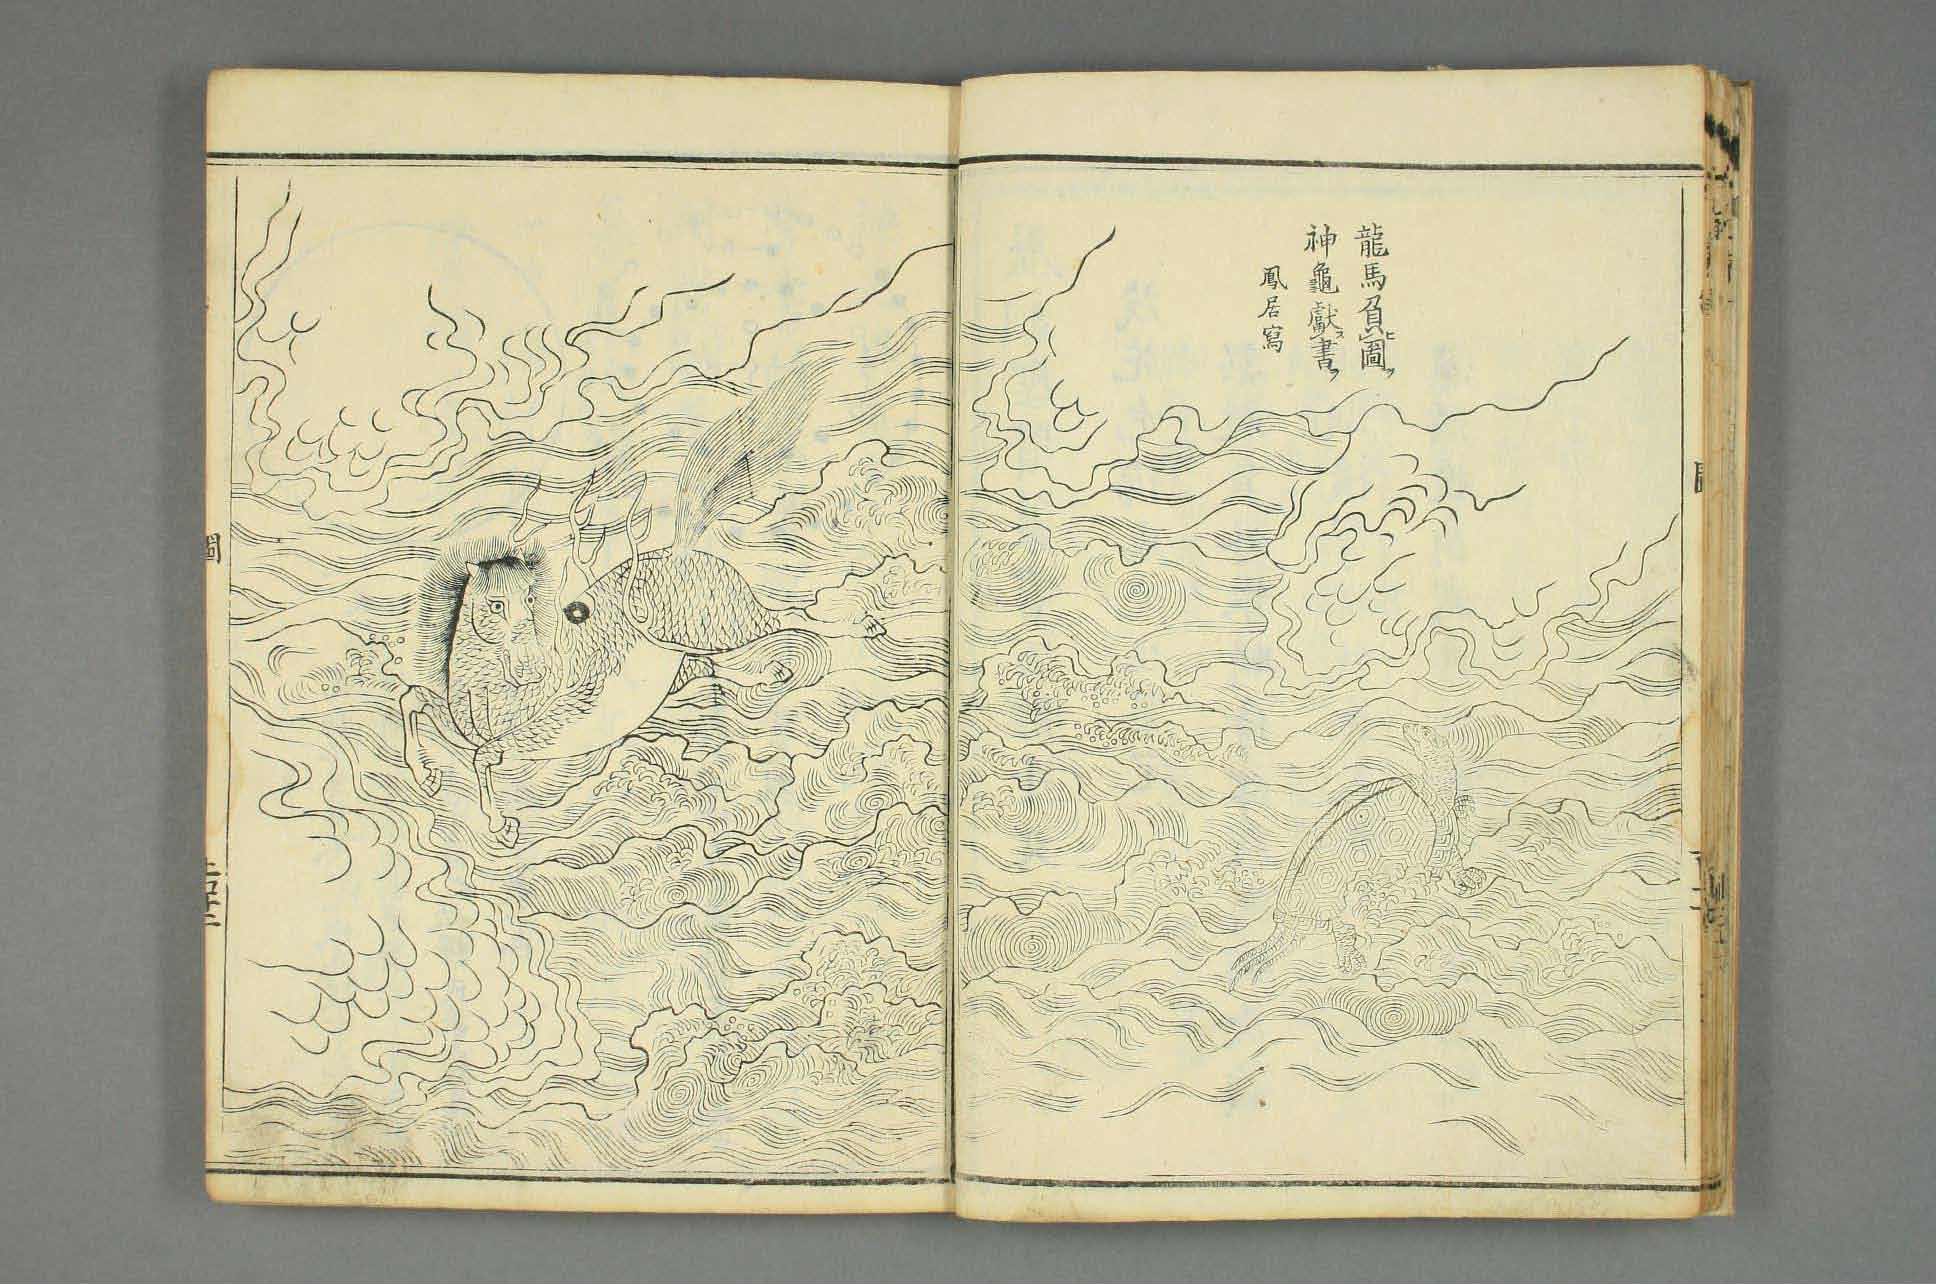 龍馬負ヒ圖ヲ
神龜獻ス書ヲ
鳳居寫
圖